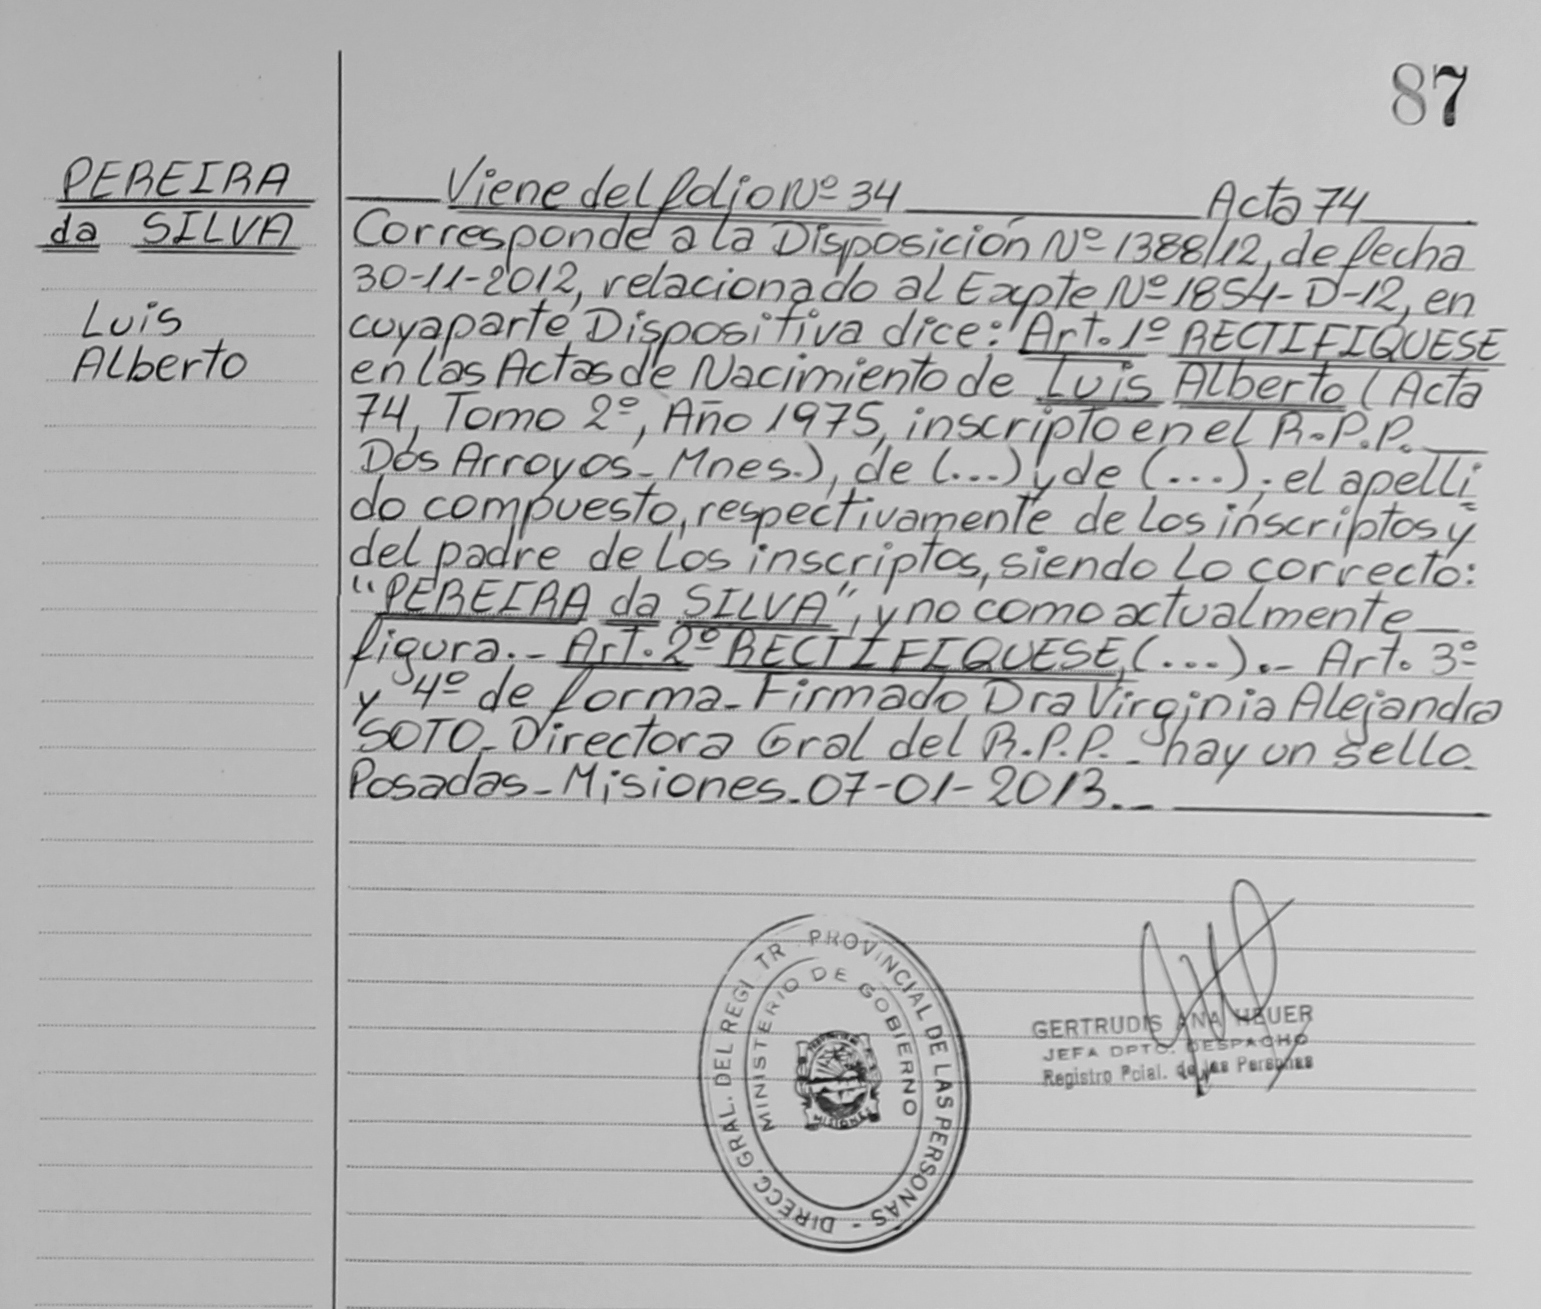 87
PEREIRA
da SILVA
Luis
Alberto
Viene del folio Nº 34 Acta 74
Corresponde a la Disposición Nº 1388/12, de fecha
30-11-2012, relacionado al Expte Nº 1854-D-12, en
cuya parte Dispositiva dice: Art. 1º RECTIFIQUESE
en las Actas de Nacimiento de Luis Alberto (Acta
74, Tomo 2º, Año 1975, inscripto en el R.P.P.
Dos Arroyos - Mnes.), de (...) y de (...), el apelli
do compuesto, respectivamente de los inscriptos y
del padre de los inscriptos, siendo lo correcto:
"PEREIRA da SILVA", y no como actualmente
figura.- Art. 2º RECTIFIQUESE, (...).- Art. 3º
y 4º de forma - Firmado Dra Virginia Alejandra
SOTO - Directora Gral del R.P.P. - hay un sello -
Posadas - Misiones - 07-01-2013.-
DIRECC. GRAL. DEL REGI TR PROVINCIAL DE LAS PERSONAS -
MINISTERIO DE GOBIERNO
MISIONES
GERTRUDIS ANA HEUER
JEFA DPTO. DESPACHO
Registro Pcial. de las Personas